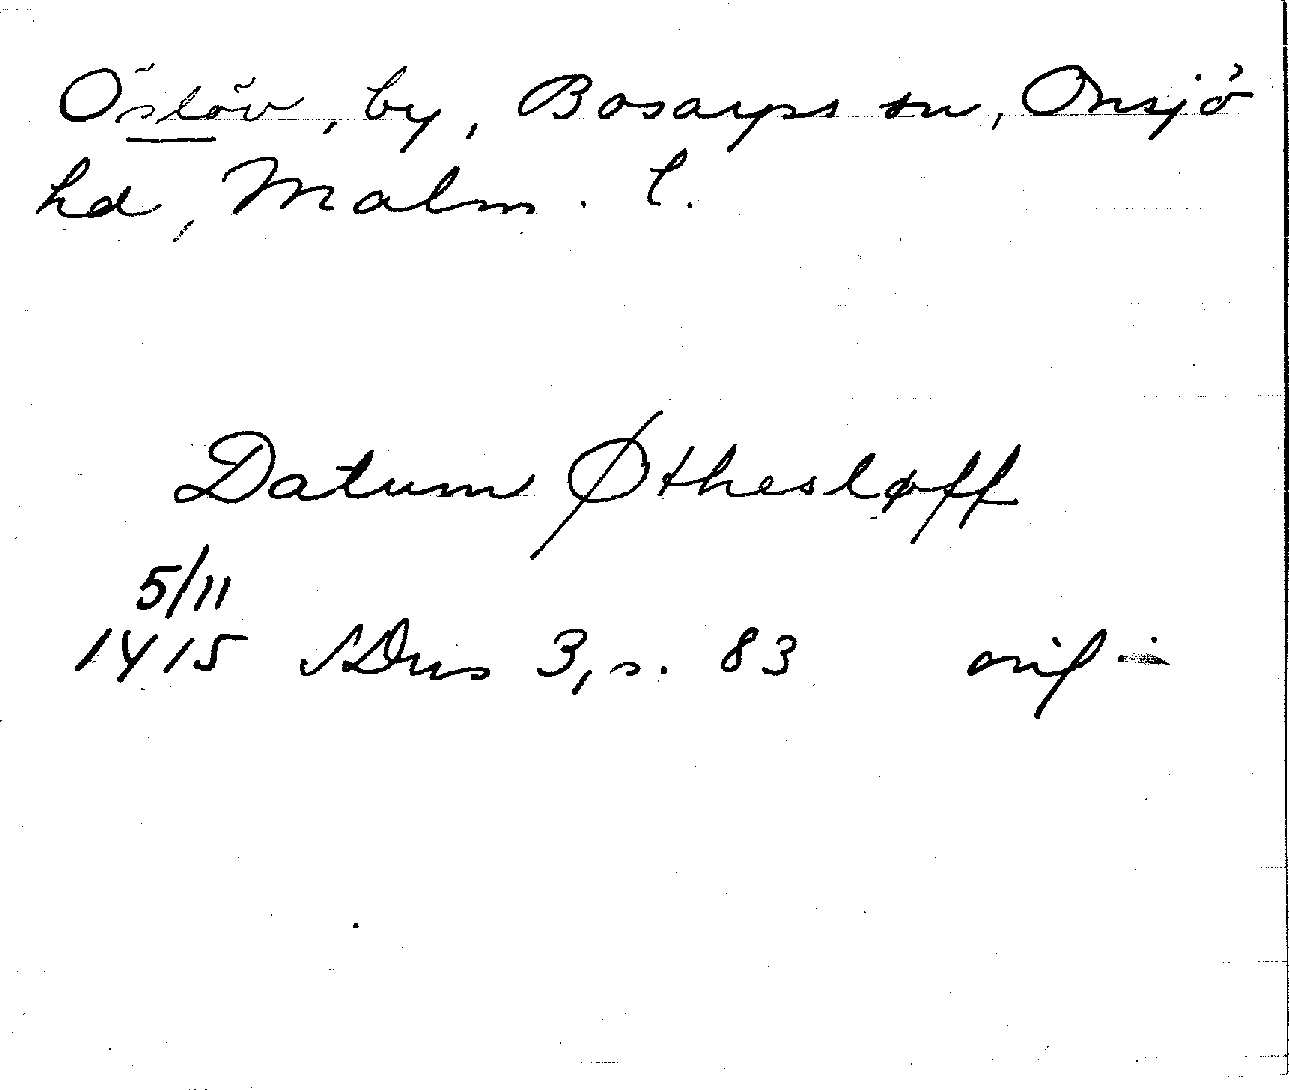 Öslöv, by, Bosarps sn, Onsjö
hd, Malm. l.
Datum Øthesløff
5/11
1415 SDns 3, s. 83 orig